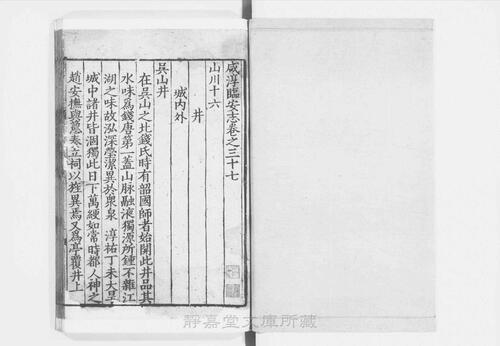 咸淳臨安志卷之三十七
山川十六
井
城内外
吳山井
在吳山之北錢氏時有韶國師者始開此井品其
水味爲錢唐第一蓋山脉融液獨源所鍾不雜江
湖之味故泓深瑩潔異於衆泉 淳祐丁未大旱
城中諸井皆涸獨此日下萬綆如常時都人神之
趙安撫與𥲅奏立祠以旌異焉又爲亭覆井上
靜嘉堂文庫所藏